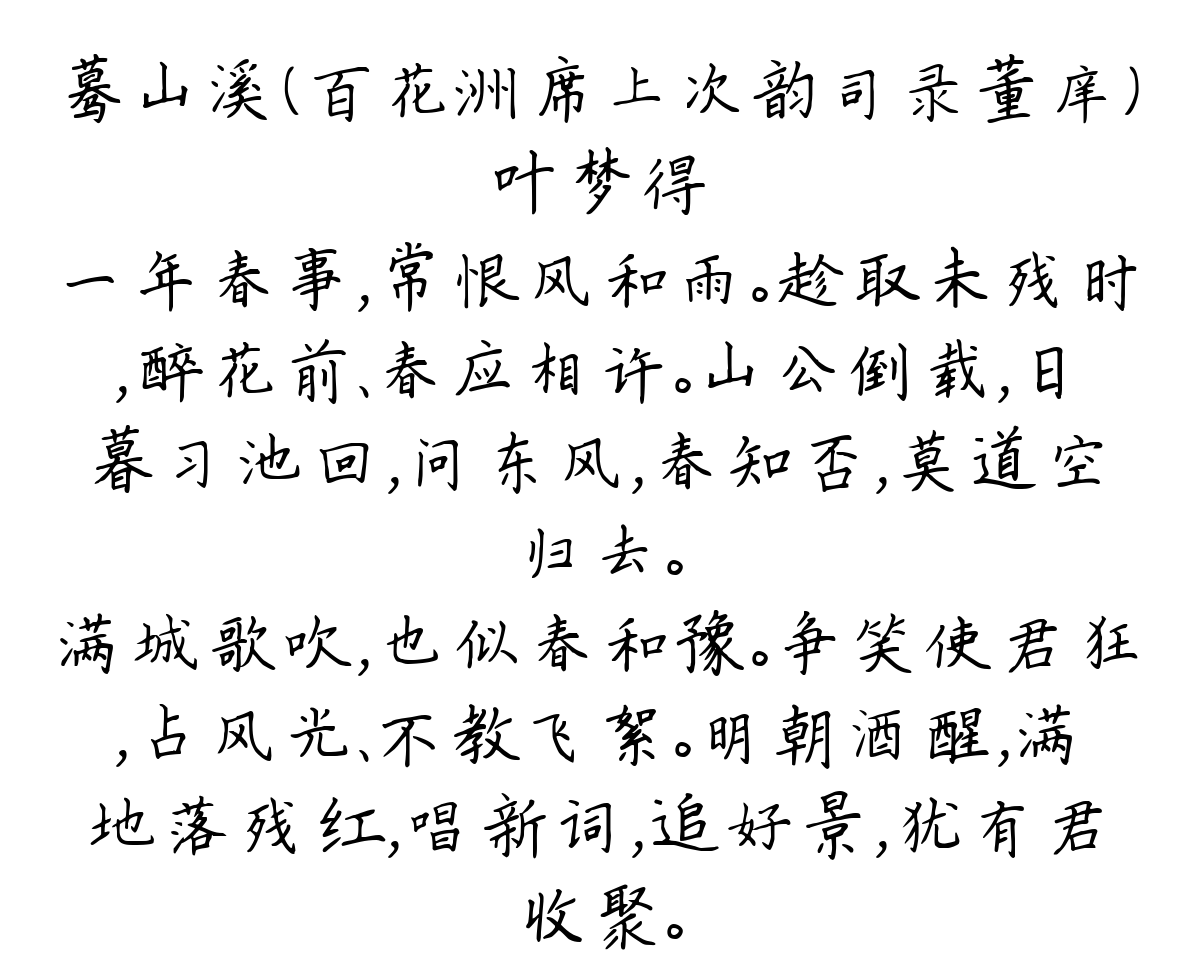 蓦山溪(百花洲席上次韵司录董庠)
叶梦得
一年春事,常恨风和雨。趁取未残时
,醉花前、春应相许。山公倒载,日
暮习池回,问东风,春知否,莫道空
归去。
满城歌吹,也似春和豫。争笑使君狂
,占风光、不教飞絮。明朝酒醒,满
地落残红,唱新词,追好景,犹有君
收聚。